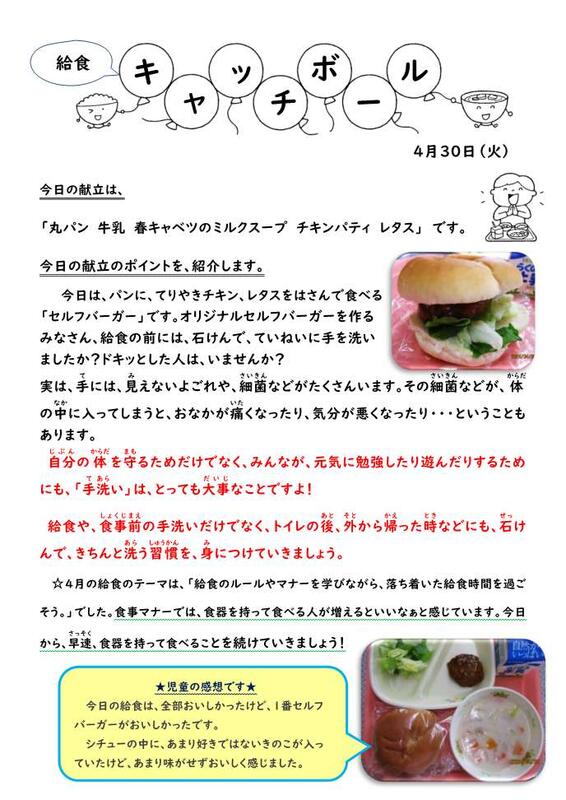 給食
キャッチボール
4月30日(火)
今日の献立は、
「丸パン 牛乳 春キャベツのミルクスープ チキンパティ レタス」 です。
今日の献立のポイントを、紹介します。
今日は、パンに、てりやきチキン、レタスをはさんで食べる
「セルフバーガー」です。オリジナルセルフバーガーを作る
みなさん、給食の前には、石けんで、ていねいに手を洗い
ましたか?ドキッとした人は、いませんか?
実は、手には、見えないよごれや、細菌などがたくさんいます。その細菌などが、体
の中に入ってしまうと、おなかが痛くなったり、気分が悪くなったり・・・ということも
あります。
自分の体を守るためだけでなく、みんなが、元気に勉強したり遊んだりするため
にも、「手洗い」は、とっても大事なことですよ!
給食や、食事前の手洗いだけでなく、トイレの後、外から帰った時などにも、石け
んで、きちんと洗う習慣を、身につけていきましょう。
☆4月の給食のテーマは、「給食のルールやマナーを学びながら、落ち着いた給食時間を過ご
そう。」でした。食事マナーでは、食器を持って食べる人が増えるといいなぁと感じています。今日
から、早速、食器を持って食べることを続けていきましょう!
★児童の感想です★
今日の給食は、全部おいしかったけど、1番セルフ
バーガーがおいしかったです。
シチューの中に、あまり好きではないきのこが入っ
ていたけど、あまり味がせずおいしく感じました。